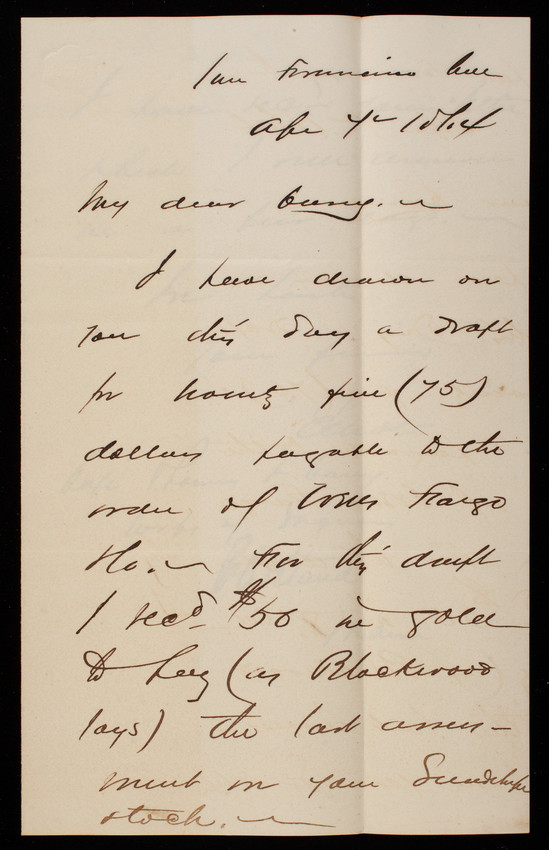 San Francisco Cal
Apr 7th 1864
My dear Casey. —
I have drawn on
you this day a draft
for seventy five (75)
dollars payable to the
order of Wells Fargo
& Co. — For this draft
I recd $50 in gold
to pay (as Blackwood
says) the last assess-
ment on your
stock. —